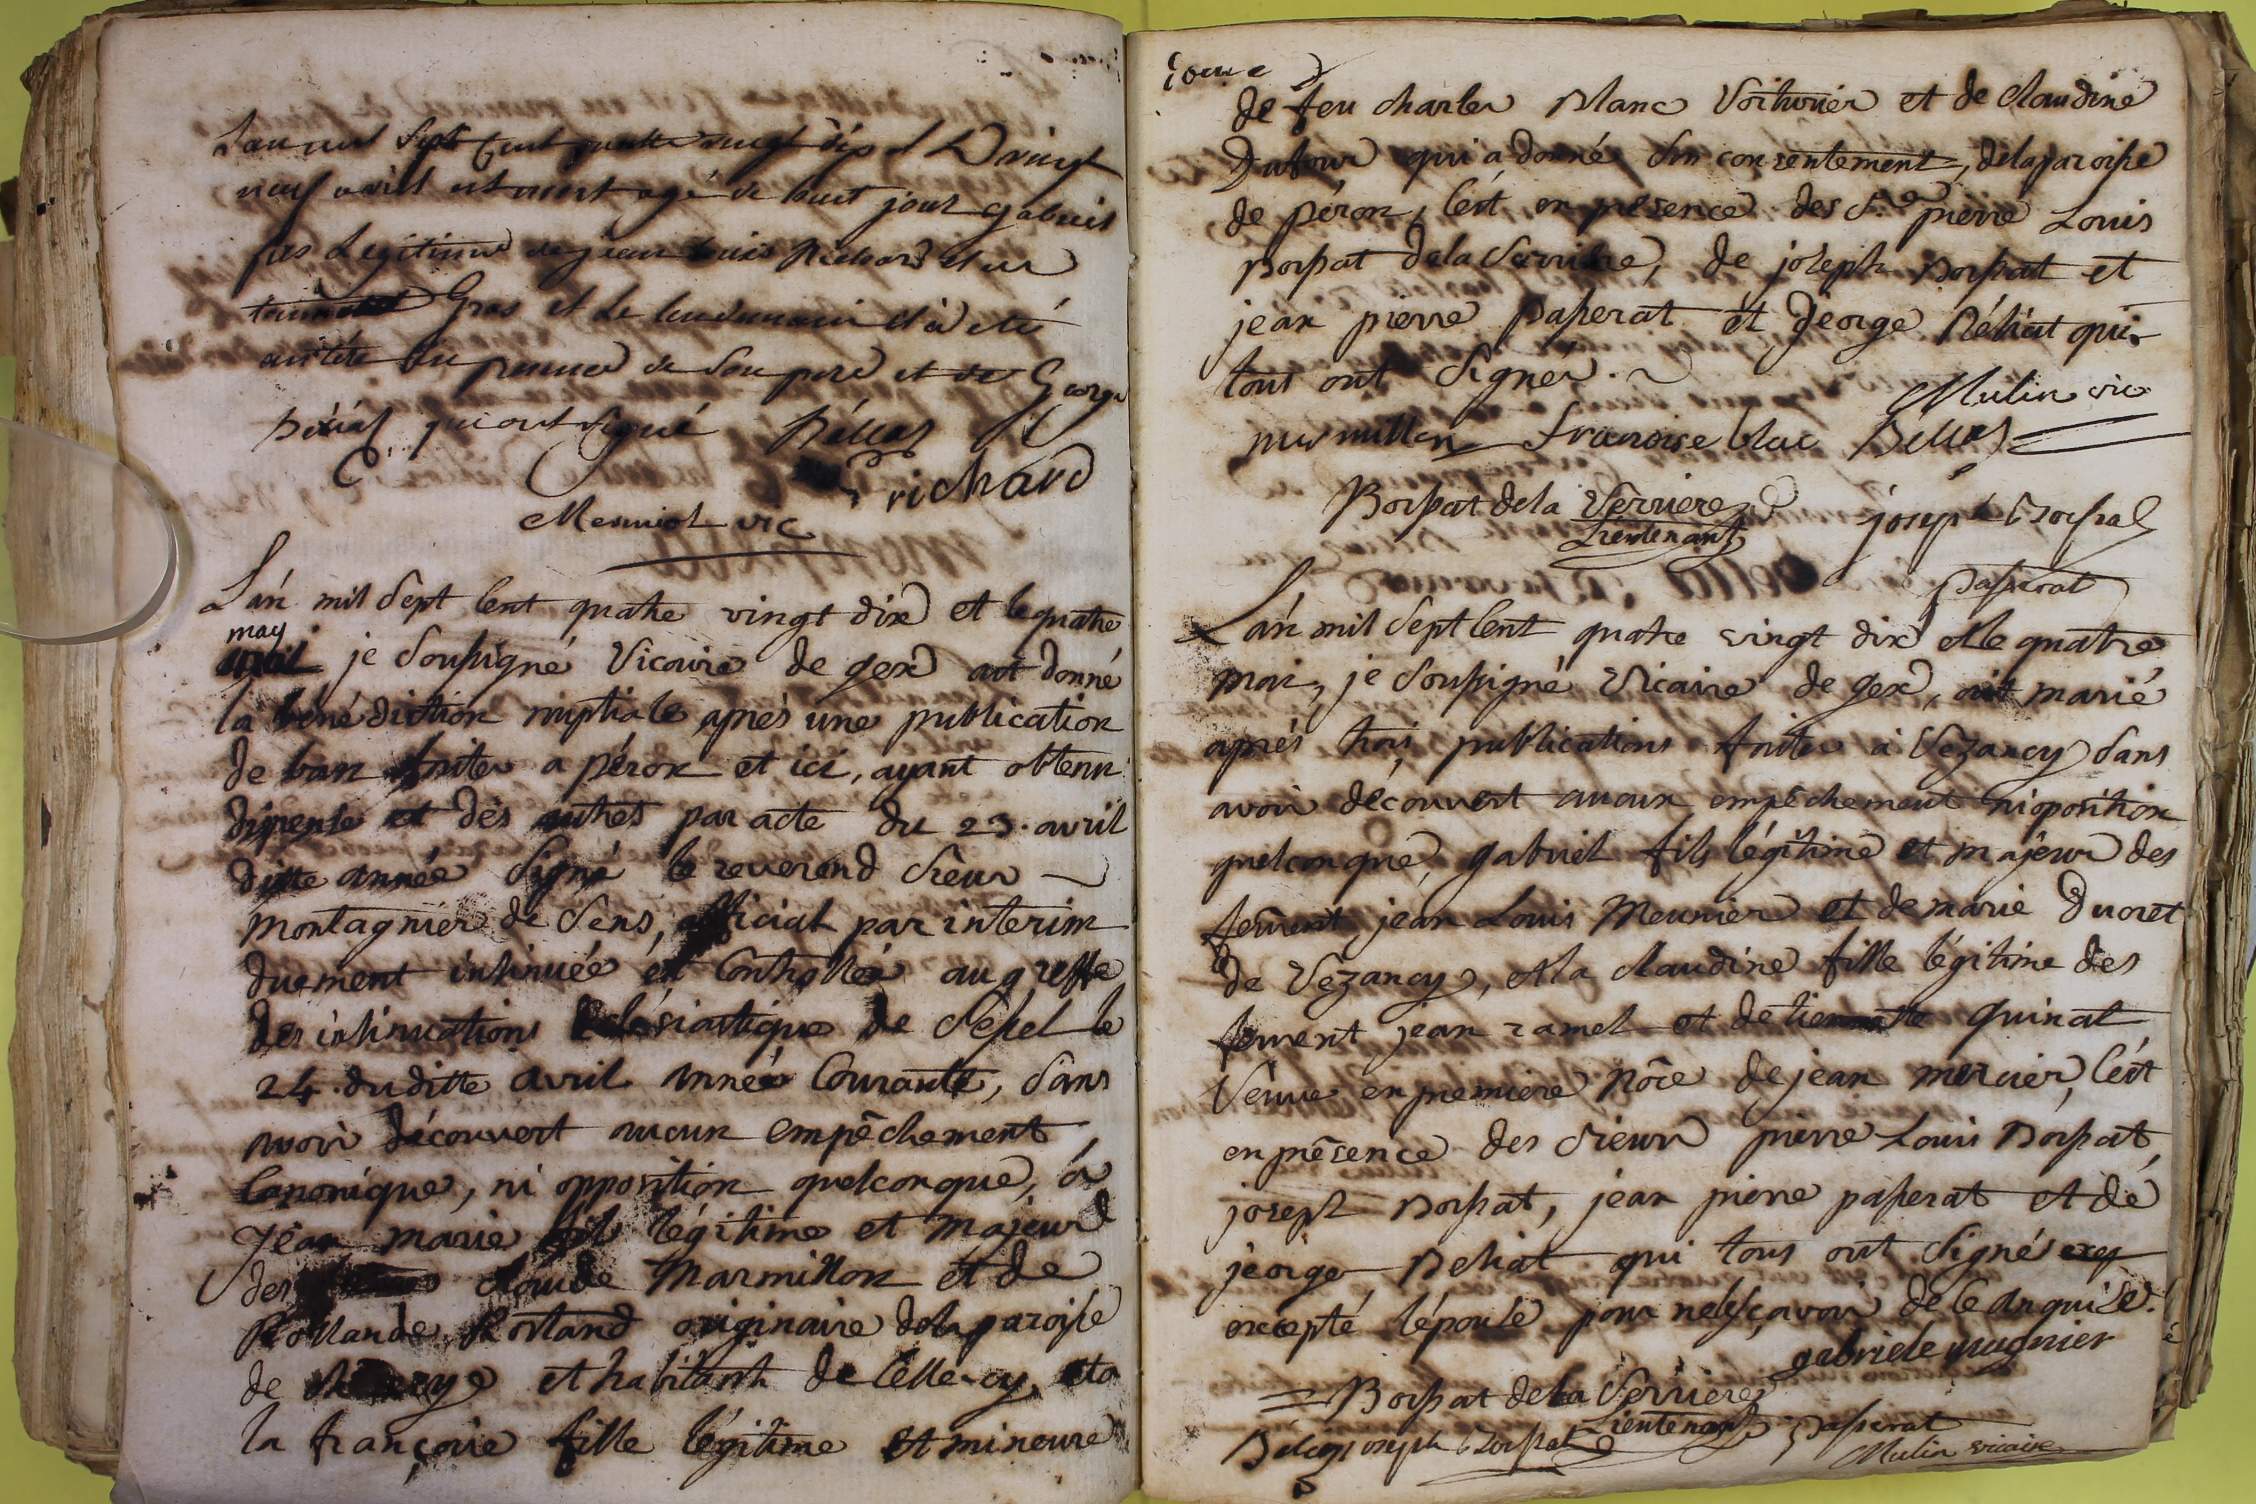 L'an mil sept cent quatre vingt dix et le vingt
neuf avril est mort agé de huit jour gabriel
fils Legitime de jean louis Richard et de
Gros et le lendemain il a eté
en presence de son pere et de George
Béliat qui ont signé Béliat
richard
Mesniol vic
L'an mil Sept Cent quatre vingt dix et le quatre
may
avril je Soussigné Vicaire de gex ait donné
la bénédiction nuptiale après une publication
de ban faite a péron et ici, ayant obtenu
dispense et des autres par acte du 23. avril
ditte année Signé le reverend Sieur
montagnier de Sens, official par interim
duement insinuée et Controllée au greffe
des insinuations Eclésiastique de Sessel le
24. du ditte avril année Courante, sans
avoir découvert aucun empêchement
Canonique, ni opposition quelconque, à
Jean marie fils légitime et majeur
des claude Marmillon et de
Rollande Rostand originaire de la paroisse
de et habitant de Cessy, et a
la françoise fille légitime et mineure
de feu charles Blanc Voiturier et de claudine
Dufour qui a donné son consentement, de la paroisse
de péron, C'ést en présence des Srs pierre Louis
Borssat de la Verriere, de joseph Borssat et
jean pierre passerat et George Béliat qui
tous ont Signés.
Mulin vic
marmillon francoise blac Béliat
Borssat de la Verriere
Lieutenant
joseph borssat
passerat
L'an mil Sept Cent quatre vingt dix et le quatre
mai, je Soussigné Vicaire de gex, ait marié
après trois publications faites à Vezancy sans
avoir découvert aucun empêchement ni oposition
quelconque, gabriel fils légitime et majeur des
jean Louis Meunier et de marie Duoret
de Vezancy, et la claudine fille légitime des
jean ramel et de tiennette quinat
Veuve en premiere nôce de jean mercier, C'ést
en présence des Sieurs pierre Louis Borssat,
joseph Borssat, jean pierre passerat et de
jeorge Beliat qui tous ont Signé exep
excepté l'épouse pour ne sçavoir de ce enquise.
gabriele mugnier
Borssat de la Verriere
Lieutenant
passerat
Béliat joseph borssat
Mulin vicaire